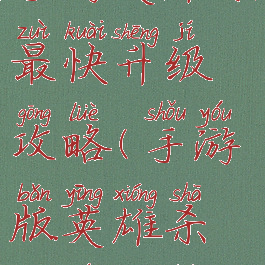 zuì kuài shēng jí
最快升级
gōng lüè shǒu yóu
攻略(手游
bǎn yīng xióng shā
版英雄杀